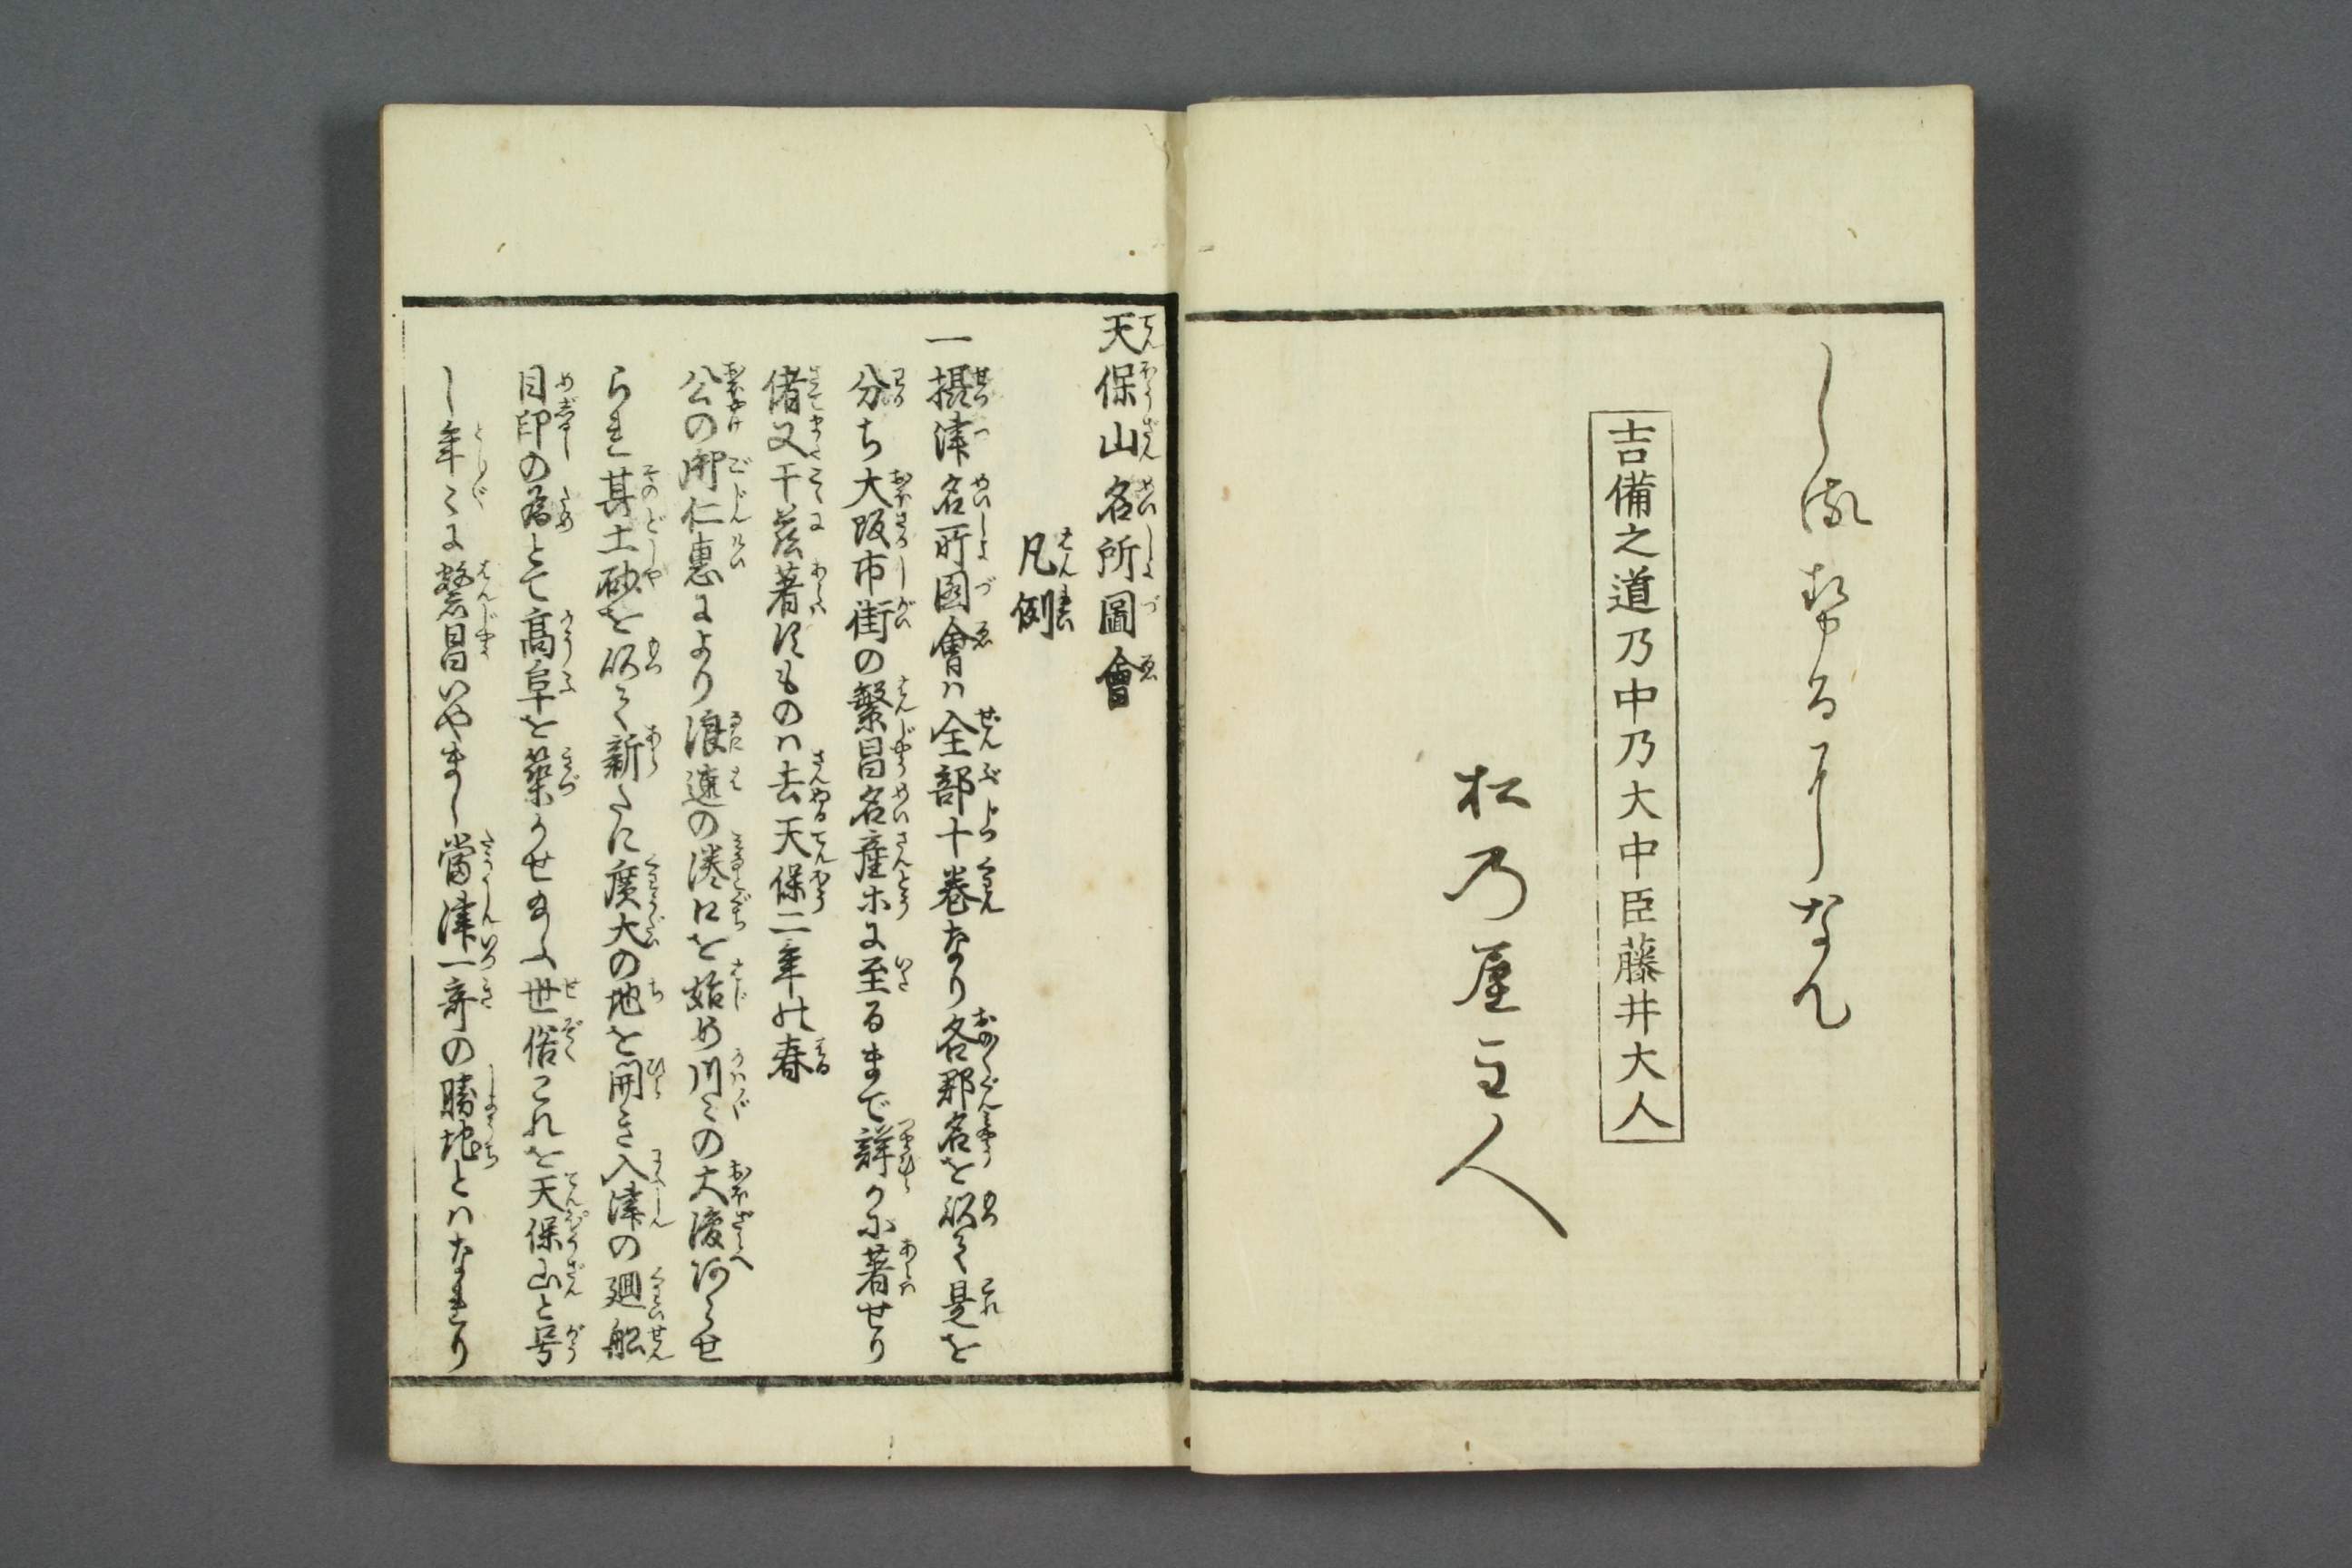 しるせるになん
吉備之道乃中乃大中臣藤井大人
松乃屋主人
天保山名所圖會
凡例
一摂津名所圖會ハ全部十巻なり各郡名を以て是を
分ち大阪市街の繫昌名産ホに至るまで詳かに著せり
偖又于茲著すものハ去天保二年の春
公の御仁惠により浪速の湊口を始め川々の大浚仰らせ
られ其土砂を以て新たに廣大の地を開き入津の廻船
目印の為とて高阜を築かせ給ふ世俗これを天保山と号
し年々に繁昌いやまし當津一奇の勝地とハなれり